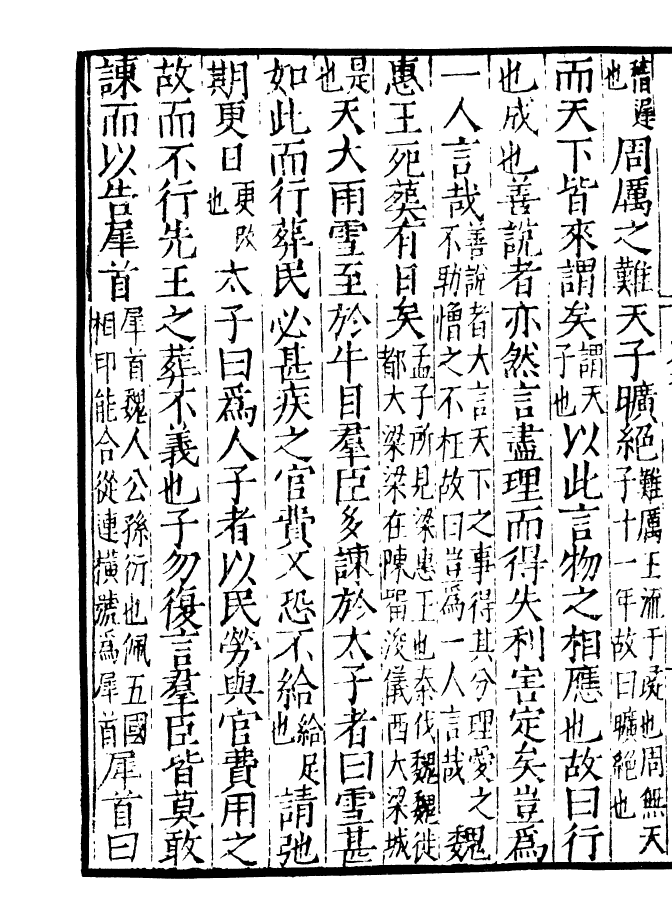 稽遲也周厲之難天子曠絕難厲王流于彘也周無天子十一年故曰曠絕也
而天下皆來謂矣謂天子也以此言物之相應也故曰行
也成也善說者亦然言盡理而得失利害定矣豈爲
一人言哉善說者大言天下之事得其分理愛之不助憎之不枉故曰豈爲一人言哉魏
惠王死葬有日矣孟子所見梁惠王也秦伐魏魏徙都大梁梁在陳留浚儀西大梁城
是也天大雨雪至於牛目羣臣多諫於太子者曰雪甚
如此而行葬民必甚疾之官費又恐不給給足也請弛
期更日更改也太子曰爲人子者以民勞與官費用之
故而不行先王之葬不義也子勿復言羣臣皆莫敢
諫而以告犀首犀首魏人公孫衍也佩五國相印能合從連橫號爲犀首犀首曰